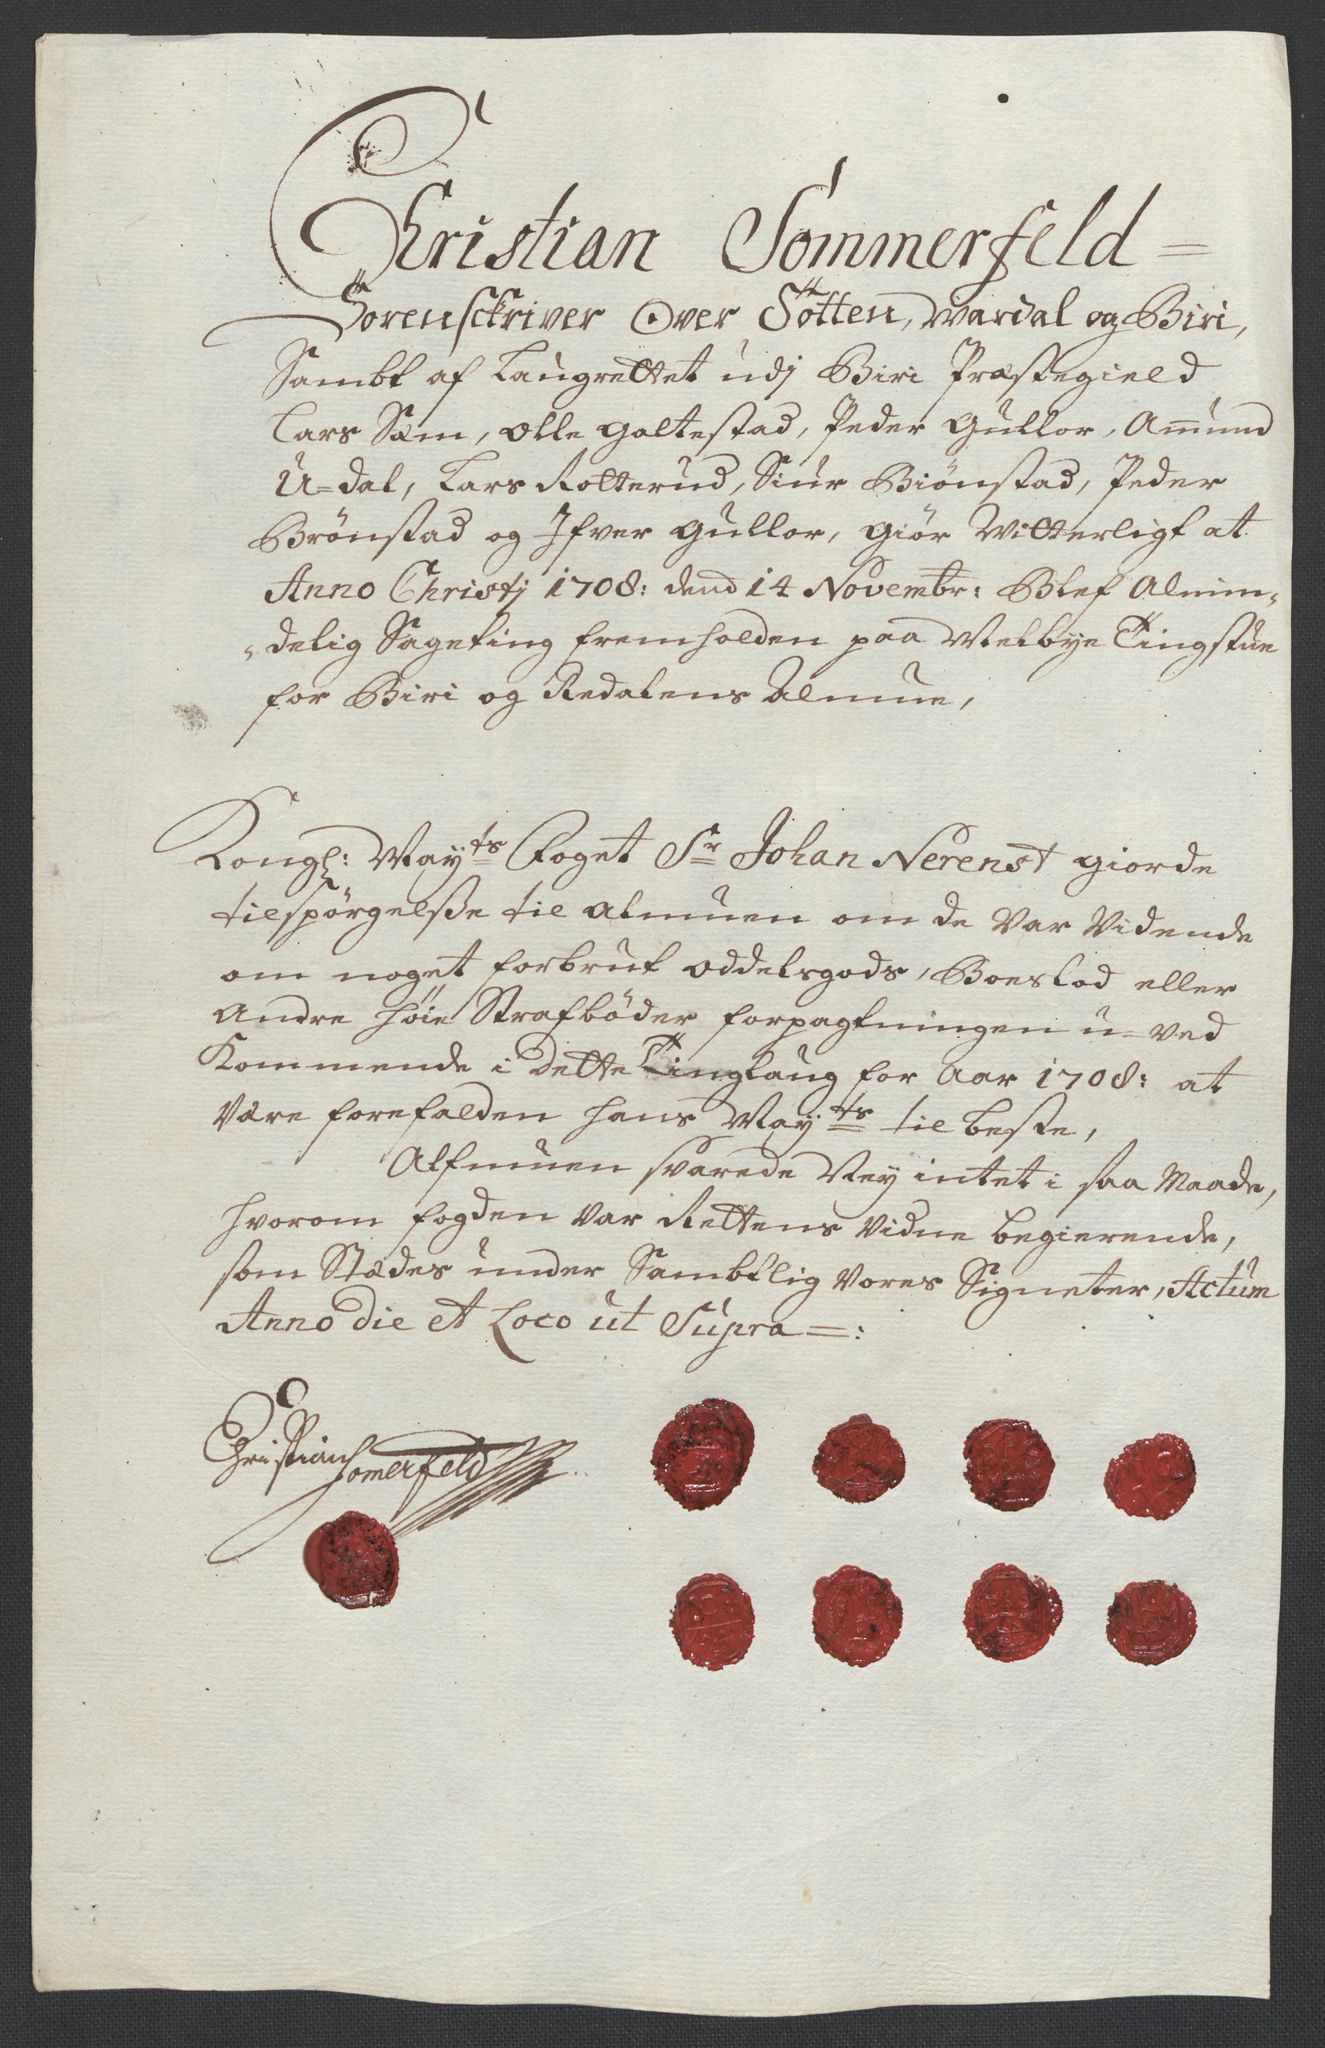 Christian Sommerfeld =
Sorenschriver Over Totten, Wardal og Biri,
Sambt af Laugrettet udj Biri Præstegield
Lars Sæm, Olle Galtestad, Peder Gullor, Amund
U=dal, Lars Rotterud, Siur Biønstad, Peder
Brønstad og Ifver Gullor, giør Witterligt at
Anno Christj 1708: dend 14 Novembr: Blef Almin-
-delig Sageting fremholden paa Melbye Tingstue
for Biri og Redalens Almue,
Kongl: Mayts Foget Sr Johan Nerenst giorde
tilspørgelße til almuen om de Var Vidende
om noget forbrut oddelsgods, Boeslod eller
Andre høie Strafbøder forpagtningen u-ved
Kommende i Dette Tinglaug for Aar 1708: at
Være forefalden hans May:ts til beste,
Allmuen svarede Ney intet i saa Maade,
hvorom fogden Var Rettens Vidne begierende,
som Stædes under Sambtlig Vores Signeter, Actum
Anno die et Loco ut Supra =:
Christian Somerfeld